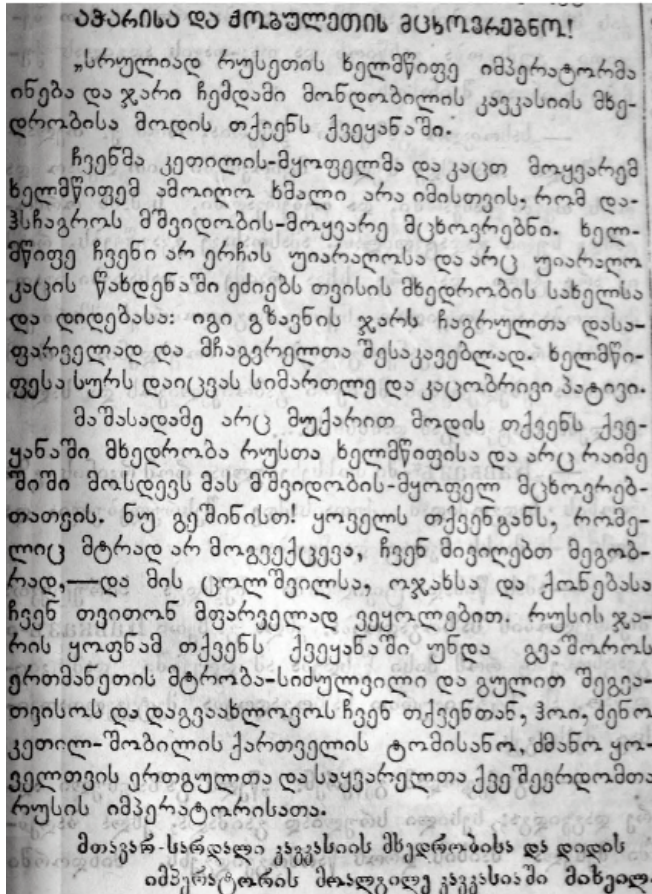 აჭარისა და ქობულეთის მცხოვრებნო!
„სრულიად რუსეთის ხელმწიფე იმპერატორმა
ინება და ჯარი ჩემდამი მონდობილის კავკასიის მხე-
დრობისა მოდის თქვენს ქვეყანაში.
ჩვენმა კეთილის-მყოფელმა და კაცთ მოყვარემ
ხელმწიფემ ამოიღო ხმალი არა იმისთვის, რომ და-
ჰსჩაგროს მშვიდობის-მოყვარე მცხოვრებნი. ხელ-
მწიფე ჩვენი არ ერჩის უიარაღოსა და არც უიარაღო
კაცის წახდენაში ეძიებს თვისის მხედრობის სახელსა
და დიდებასა: იგი გზავნის ჯარს ჩაგრულთა დასა-
ფარველად და მჩაგვრელთა შესაკავებლად. ხელმწი-
ფესა სურს დაიცვას სიმართლე და კაცობრივი პატივი.
მაშასადამე არც მუქარით მოდის თქვენს ქვე-
ყანაში მხედრობა რუსთა ხელმწიფისა და არც რაიმე
შიში მოსდევს მას მშვიდობის-მყოფელ მცხოვრებ-
თათვის. ნუ გეშინისთ! ყოველს თქვენგანს, რომე-
ლიც მტრად არ მოგვექცევა, ჩვენ მივიღებთ მეგობ-
რად,—და მის ცოლშვილსა, ოჯახსა და ქონებასა
ჩვენ თვითონ მფარველად ვეყოლებით. რუსის ჯა-
რის ყოფნამ თქვენს ქვეყანაში უნდა გვაშოროს
ერთმანეთის მტრობა-სიძულვილი და გულით შეგვა-
თვისოს და დაგვაახლოვოს ჩვენ თქვენთან, ჰოი, ძენო
კეთილ-შობილის ქართველის ტომისანო, ძმანო ყო-
ველთვის ერთგულთა და საყვარელთა ქვეშევრდომთა
რუსის იმპერატორისათა.
მთავარ-სარდალი კავკასიის მხედრობისა და დიდის
იმპერატორის მოადგილე კავკასიაში მიხეილ